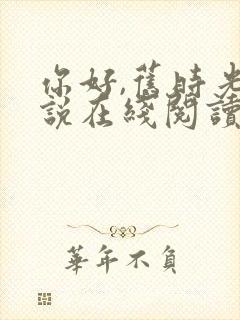 你好,舊時光
說在綫閱讀
華年不負